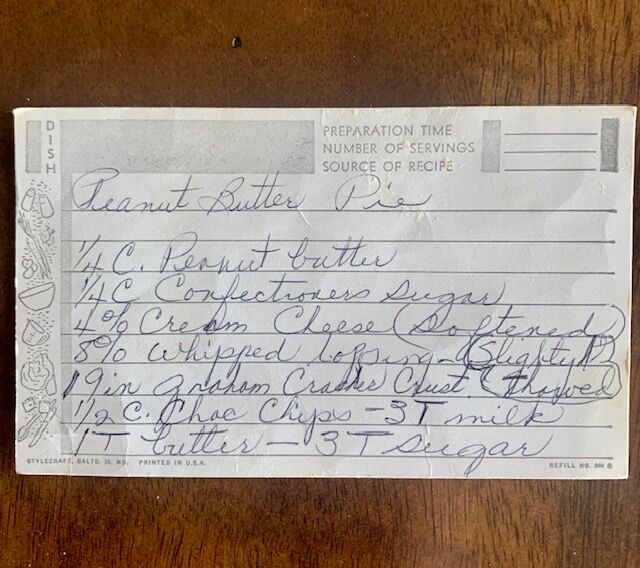 DISH
PREPARATION TIME
NUMBER OF SERVINGS
SOURCE OF RECIPE
Peanut Butter Pie
1/4 C. Peanut butter
1/4 C Confectioners sugar
4 % Cream Cheese (Softened)
8 % whipped topping - (Slightly
1 9 in graham Cracker Crust. Thawed)
1/2 C. Choc Chips - 3 T milk
1 T butter - 3 T sugar
STYLECRAFT, BALTO. 30, MD. PRINTED IN U.S.A. REFILL NO.